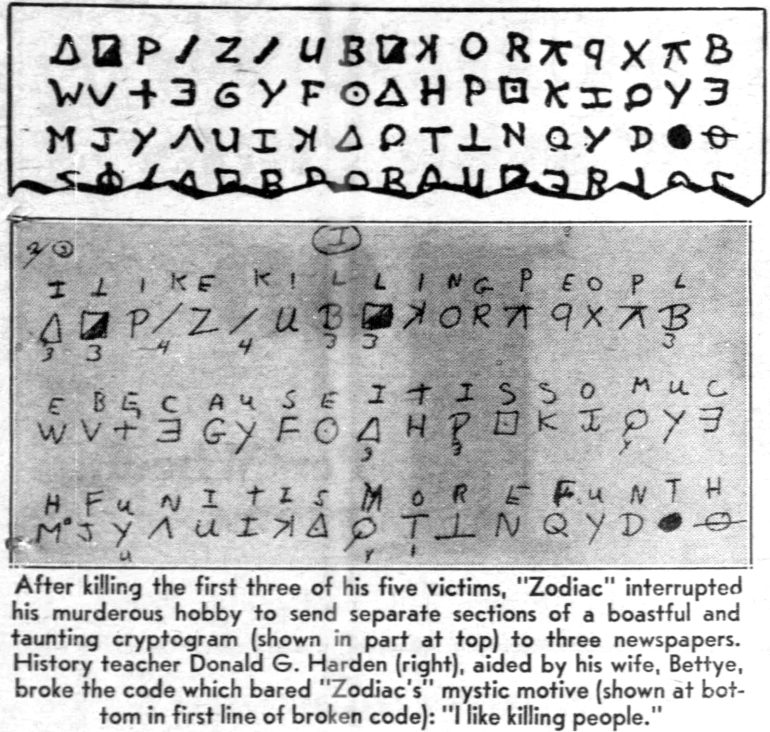 Δ ◪ P / Z / U B ◪ ꓘ O R ⊼ q X ⊼ B
W V + Ǝ G Y F ⊙ Δ H P ⊡ K I ϙ Y Ǝ
M J Y Λ U I ꓘ Δ ϙ T ⊥ N Q Y D ● ⊖
I
I L I K E K I L L I N G P E O P L
Δ ◪ P / Z / U B ◪ ꓘ O R ⊼ q X ⊼ B
3 3 4 4 3 3 3
E B E C A U S E I T I S S O M U C
W V + Ǝ G Y F ⊙ Δ H P ⊡ K I ϙ Y Ǝ
3 3
H F U N I T I S M O R E F U N T H
M J Y Λ U I ꓘ Δ ϙ T ⊥ N Q Y D ● ⊖
After killing the first three of his five victims, "Zodiac" interrupted
his murderous hobby to send separate sections of a boastful and
taunting cryptogram (shown in part at top) to three newspapers.
History teacher Donald G. Harden (right), aided by his wife, Bettye,
broke the code which bared "Zodiac's" mystic motive (shown at bot-
tom in first line of broken code): "I like killing people."